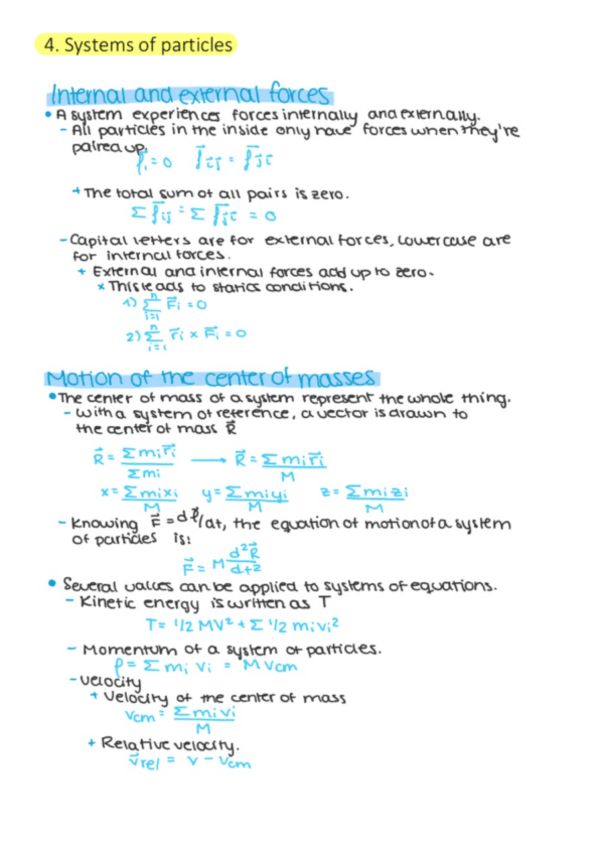 4. Systems of particles
Internal and external forces
• A system experiences forces internally and externally.
- All particles in the inside only have forces when they're
paired up.
f⃗ᵢ = 0 f⃗ᵢⱼ = f⃗ⱼᵢ
+ The total sum of all pairs is zero.
Σ f⃗ᵢⱼ = Σ f⃗ⱼᵢ = 0
- Capital letters are for external forces, lowercase are
for internal forces.
+ External and internal forces add up to zero.
x This leads to statics conditions.
1) Σⁿᵢ₌₁ F⃗ᵢ = 0
2) Σⁿᵢ₌₁ r⃗ᵢ x F⃗ᵢ = 0
Motion of the center of masses
• The center of mass of a system represent the whole thing.
- With a system of reference, a vector is drawn to
the center of mass R⃗
R⃗ = Σmᵢr⃗ᵢ / Σmᵢ → R⃗ = Σmᵢr⃗ᵢ / M
x = Σmᵢxᵢ / M y = Σmᵢyᵢ / M z = Σmᵢzᵢ / M
- Knowing F⃗ = dp⃗/dt, the equation of motion of a system
of particles is:
F⃗ = M d²R⃗ / dt²
• Several values can be applied to systems of equations.
- Kinetic energy is written as T
T = 1/2 MV² + Σ 1/2 mᵢvᵢ²
- Momentum of a system of particles.
p = Σ mᵢ vᵢ = M vcm
- Velocity
+ Velocity of the center of mass
vcm = Σmᵢvᵢ / M
+ Relative velocity.
v⃗rel = v - vcm